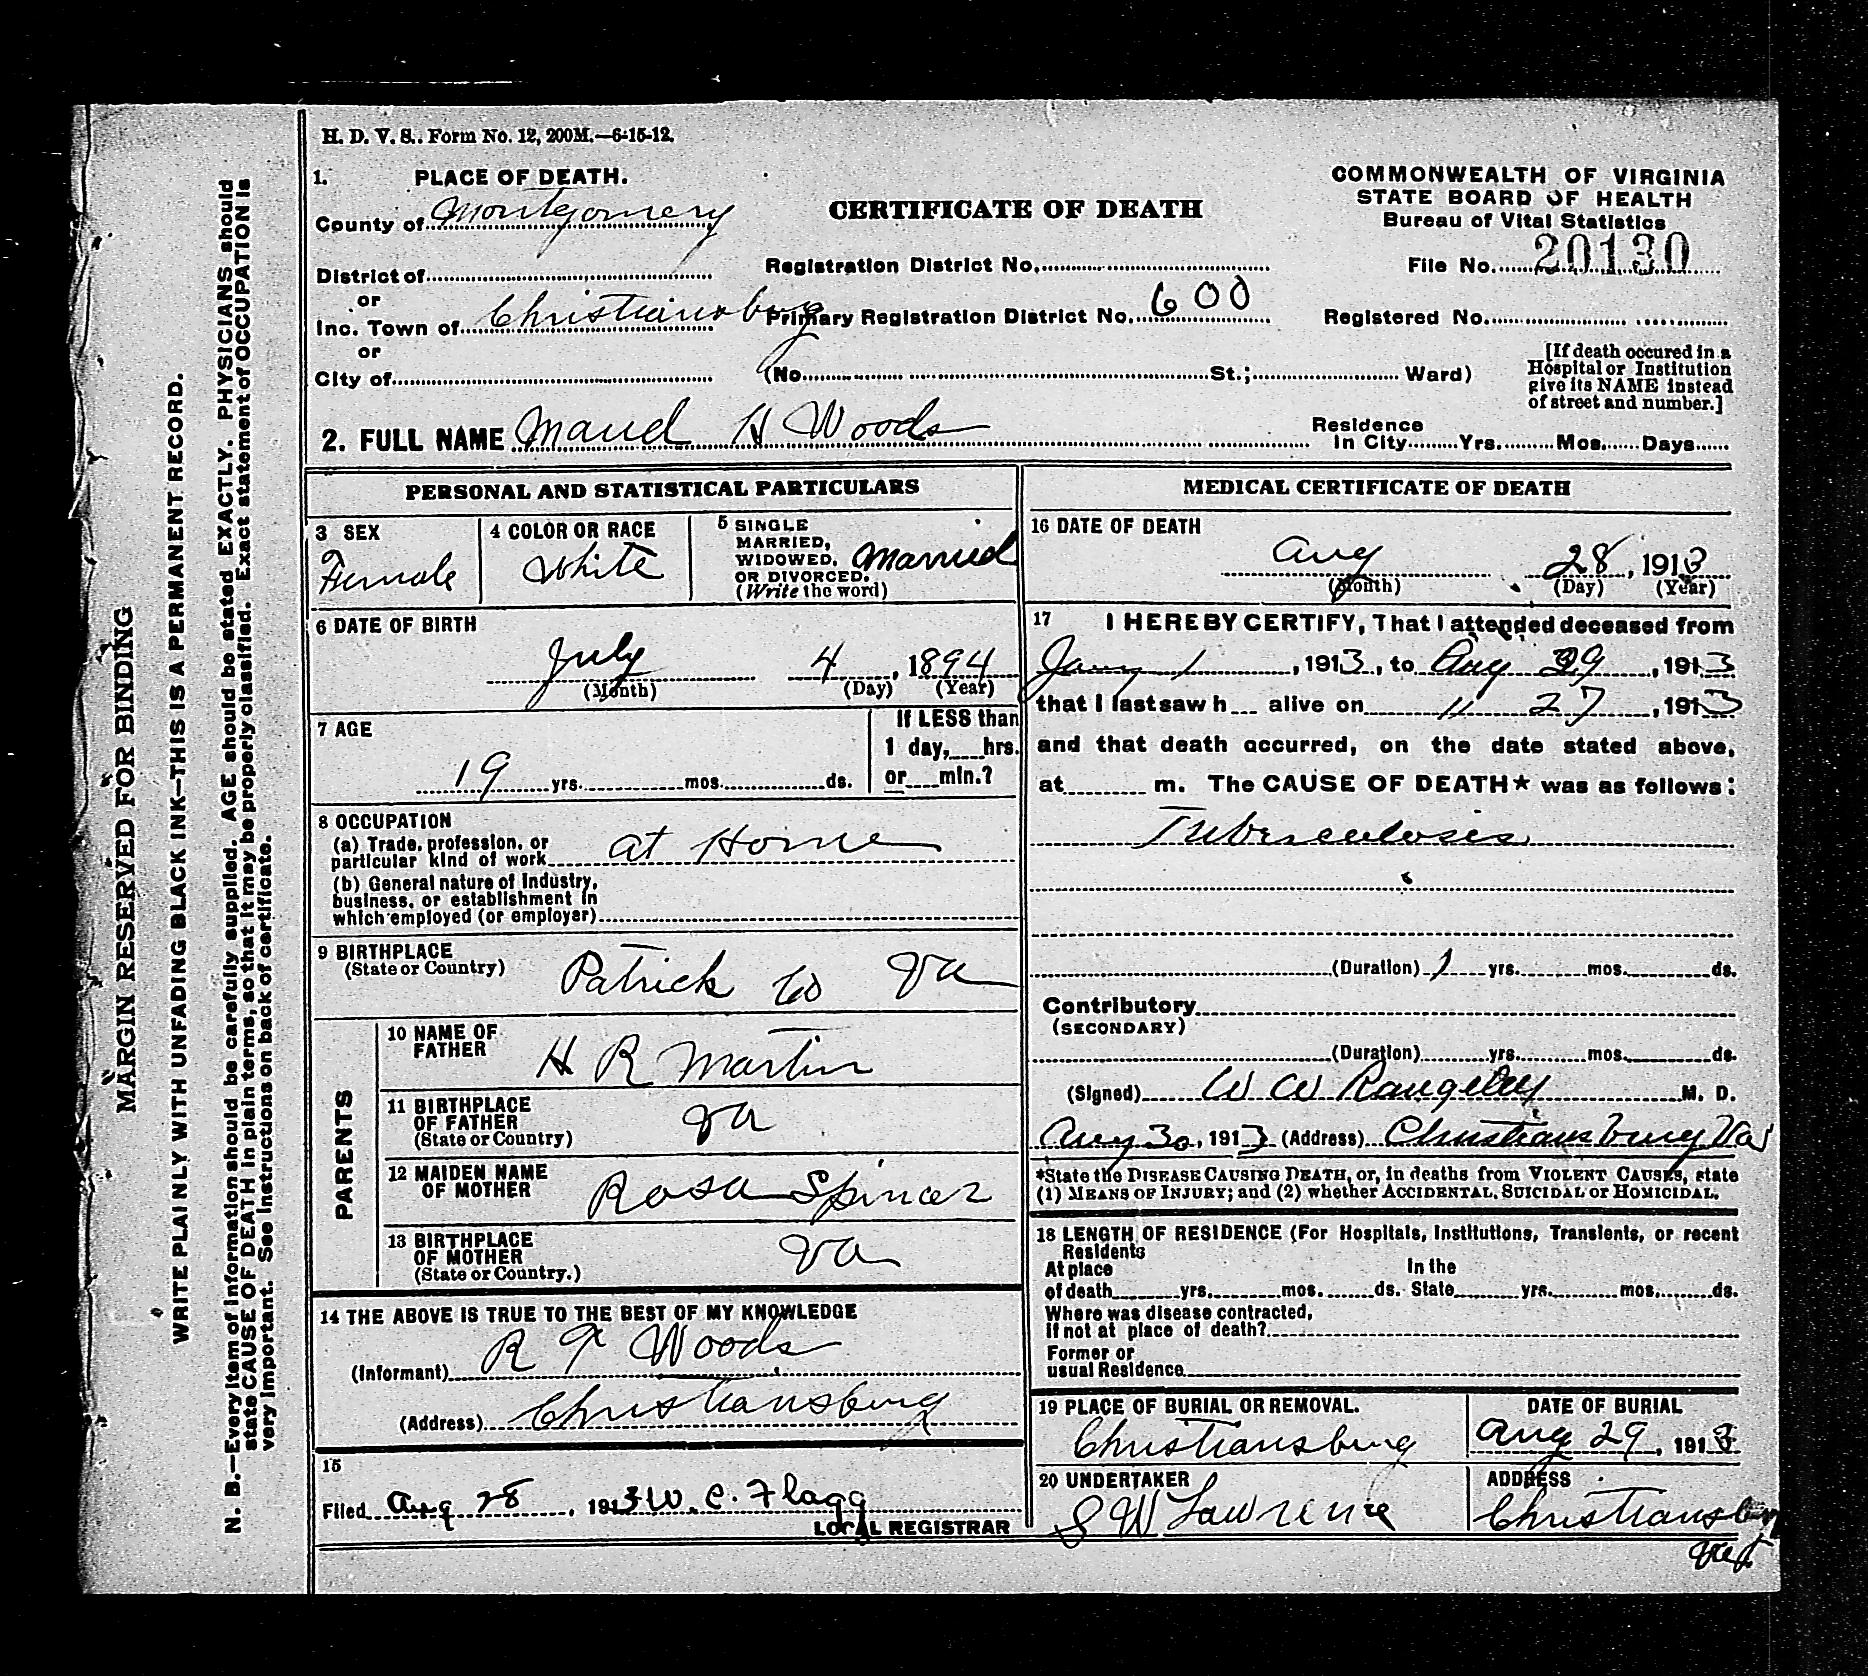 H. D. V. S.. Form No. 12, 200M.—6-15-12.
1. PLACE OF DEATH.
County of Montgomery
CERTIFICATE OF DEATH
COMMONWEALTH OF VIRGINIA
STATE BOARD OF HEALTH
Bureau of Vital Statistics
File No. 20130
District of
Registration District No.
or
Inc. Town of Christiansburg
Primary Registration District No. 600
Registered No.
or
City of
(No. St.; Ward)
[If death occured in a
Hospital or Institution
give its NAME instead
of street and number.]
2. FULL NAME Maud H Woods
Residence
In City Yrs. Mos. Days
PERSONAL AND STATISTICAL PARTICULARS
3 SEX
Female
4 COLOR OR RACE
White
5 SINGLE
MARRIED,
WIDOWED,
OR DIVORCED.
(Write the word)
Married
6 DATE OF BIRTH
July 4, 1894
(Month) (Day) (Year)
7 AGE
19 yrs. mos. ds.
If LESS than
1 day, hrs.
or min.?
8 OCCUPATION
(a) Trade, profession, or
particular kind of work at Home
(b) General nature of Industry,
business, or establishment in
which employed (or employer)
9 BIRTHPLACE
(State or Country)
Patrick Co Va
PARENTS
10 NAME OF
FATHER
H R Martin
11 BIRTHPLACE
OF FATHER
(State or Country)
Va
12 MAIDEN NAME
OF MOTHER
Rosa Spincer
13 BIRTHPLACE
OF MOTHER
(State or Country.)
Va
14 THE ABOVE IS TRUE TO THE BEST OF MY KNOWLEDGE
(Informant) R Woods
(Address) Christiansburg
15
Filed Aug 28, 1913 W. C. Flagg
LOCAL REGISTRAR
MEDICAL CERTIFICATE OF DEATH
16 DATE OF DEATH
Aug 28, 1913
(Month) (Day) (Year)
17 I HEREBY CERTIFY, That I attended deceased from
Jany 1, 1913, to Aug 29, 1913
that I last saw h alive on 11 27, 1913
and that death occurred, on the date stated above,
at m. The CAUSE OF DEATH★ was as follows:
Tuberculosis
(Duration) 1 yrs. mos. ds.
Contributory
(SECONDARY)
(Duration) yrs. mos. ds.
(Signed) W W Rangeley M. D.
Aug 30, 1913 (Address) Christiansburg Va
*State the DISEASE CAUSING DEATH, or, in deaths from VIOLENT CAUSES, state
(1) MEANS OF INJURY; and (2) whether ACCIDENTAL, SUICIDAL or HOMICIDAL.
18 LENGTH OF RESIDENCE (For Hospitals, Institutions, Transients, or recent
Residents
At place In the
of death yrs. mos. ds. State yrs. mos. ds.
Where was disease contracted,
If not at place of death?
Former or
usual Residence
19 PLACE OF BURIAL OR REMOVAL.
Christiansburg
DATE OF BURIAL
Aug 29, 1913
20 UNDERTAKER
S W Lawrence
ADDRESS
Christiansburg
Va
MARGIN RESERVED FOR BINDING
WRITE PLAINLY WITH UNFADING BLACK INK—THIS IS A PERMANENT RECORD.
N. B.—Every item of information should be carefully supplied. AGE should be stated EXACTLY. PHYSICIANS should
state CAUSE OF DEATH in plain terms, so that it may be properly classified. Exact statement of OCCUPATION is
very important. See instructions on back of certificate.